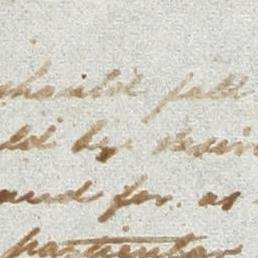 should fall
ld by
and for. as
particular